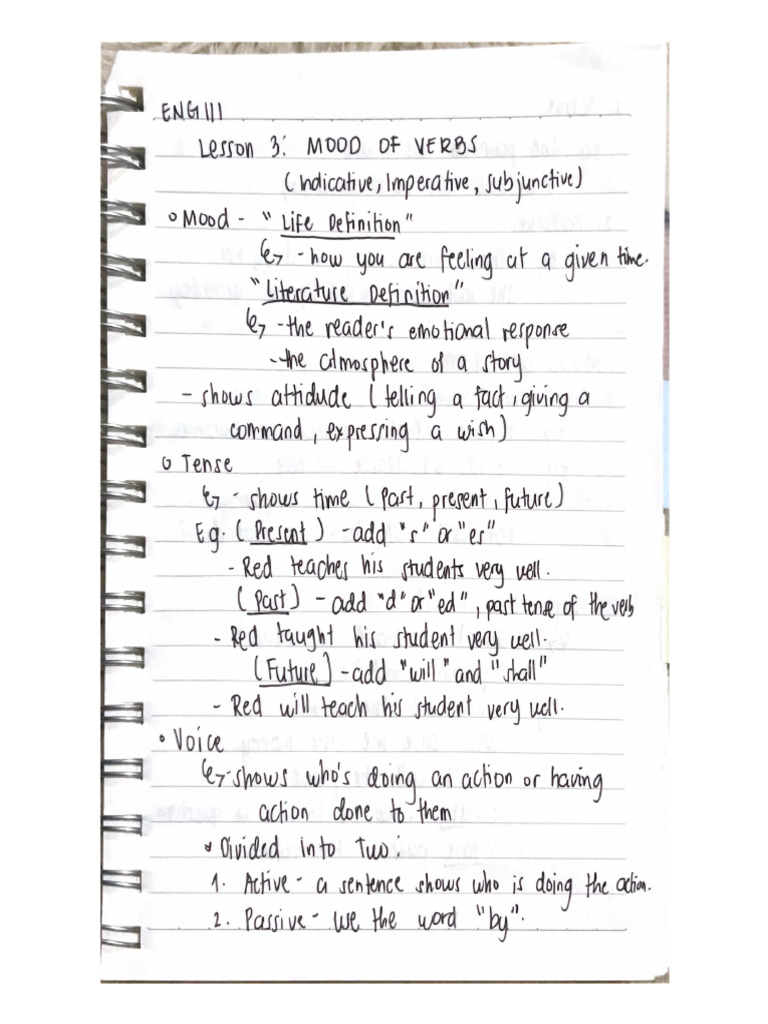 ENG 111
Lesson 3: MOOD OF VERBS
(Indicative, Imperative, subjunctive)
• Mood - "Life Definition"
↳ - how you are feeling at a given time.
"Literature Definition"
↳ - the reader's emotional response
- the atmosphere of a story
- shows attidude (telling a fact, giving a
command, expressing a wish)
• Tense
↳ - shows time (past, present, future)
Eg. (Present) - add "s" or "es"
- Red teaches his students very well.
(Past) - add "d" or "ed", past tense of the verb
- Red taught his student very well.
(Future) - add "will" and "shall"
- Red will teach his student very well.
• Voice
↳ - shows who's doing an action or having
action done to them
• Divided into Two:
1. Active - a sentence shows who is doing the action.
2. Passive - use the word "by".